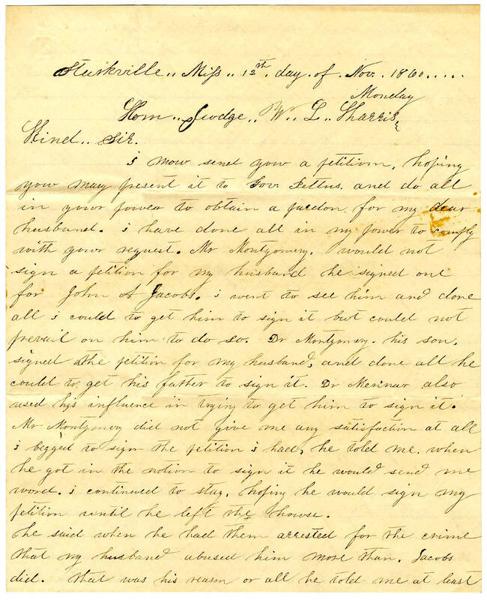 Starkville,, Miss,, 12th,, day,, of,, Nov. 1860.....
Monday
Hon,, Judge,, W,, L,, Sharris,
Kind,, Sir.
i now send you a petition, hoping
you may present it to Gov Pettus. and do all
in your power to obtain a pardon for my dear
husband. i have done all in my power to comply
with your request. Mr Montgomery. would not
sign a petition for my husband he signed one
for John A Jacobs. i went to see him and done
all i could to get him to sign it but could not
prevail on him to do so. Dr Montgomery. his son.
signed the petition for my husband, and done all he
could to get his father to sign it. Dr also
used his influence in trying to get him to sign it.
Mr Montgomery did not give me any satisfaction at all
i begged to sign the petition i had, he told me. when
he got in the notion to sign it he would send me
word. i continued to stay, hoping he would sign my
petition until he left the house.
he said when he had them arrested for the crime
that my husband abused him more than. Jacobs
did. that was his reason or all he told me at least